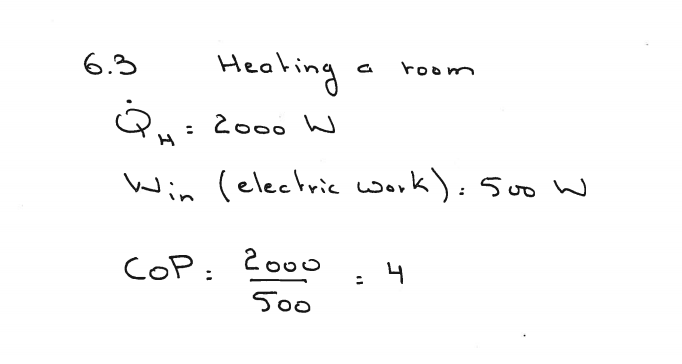 6.3 Heating a room
Q̇H = 2000 W
Win (electric work) = 500 W
COP = 2000 / 500 = 4